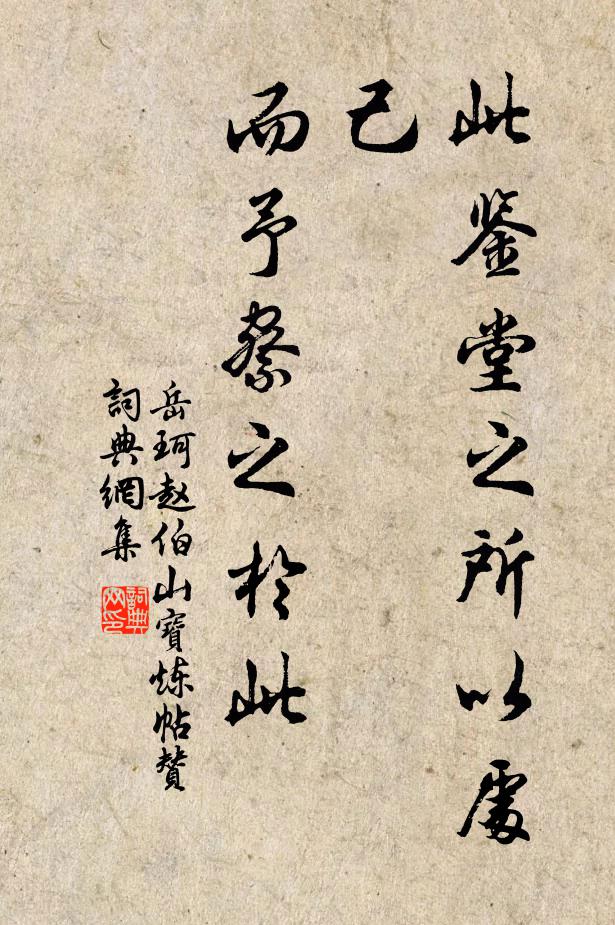 此鉴堂之所以處
己
而予察之於此
岳珂赵伯山寶煉帖贊
詞典網集
詞典
网印